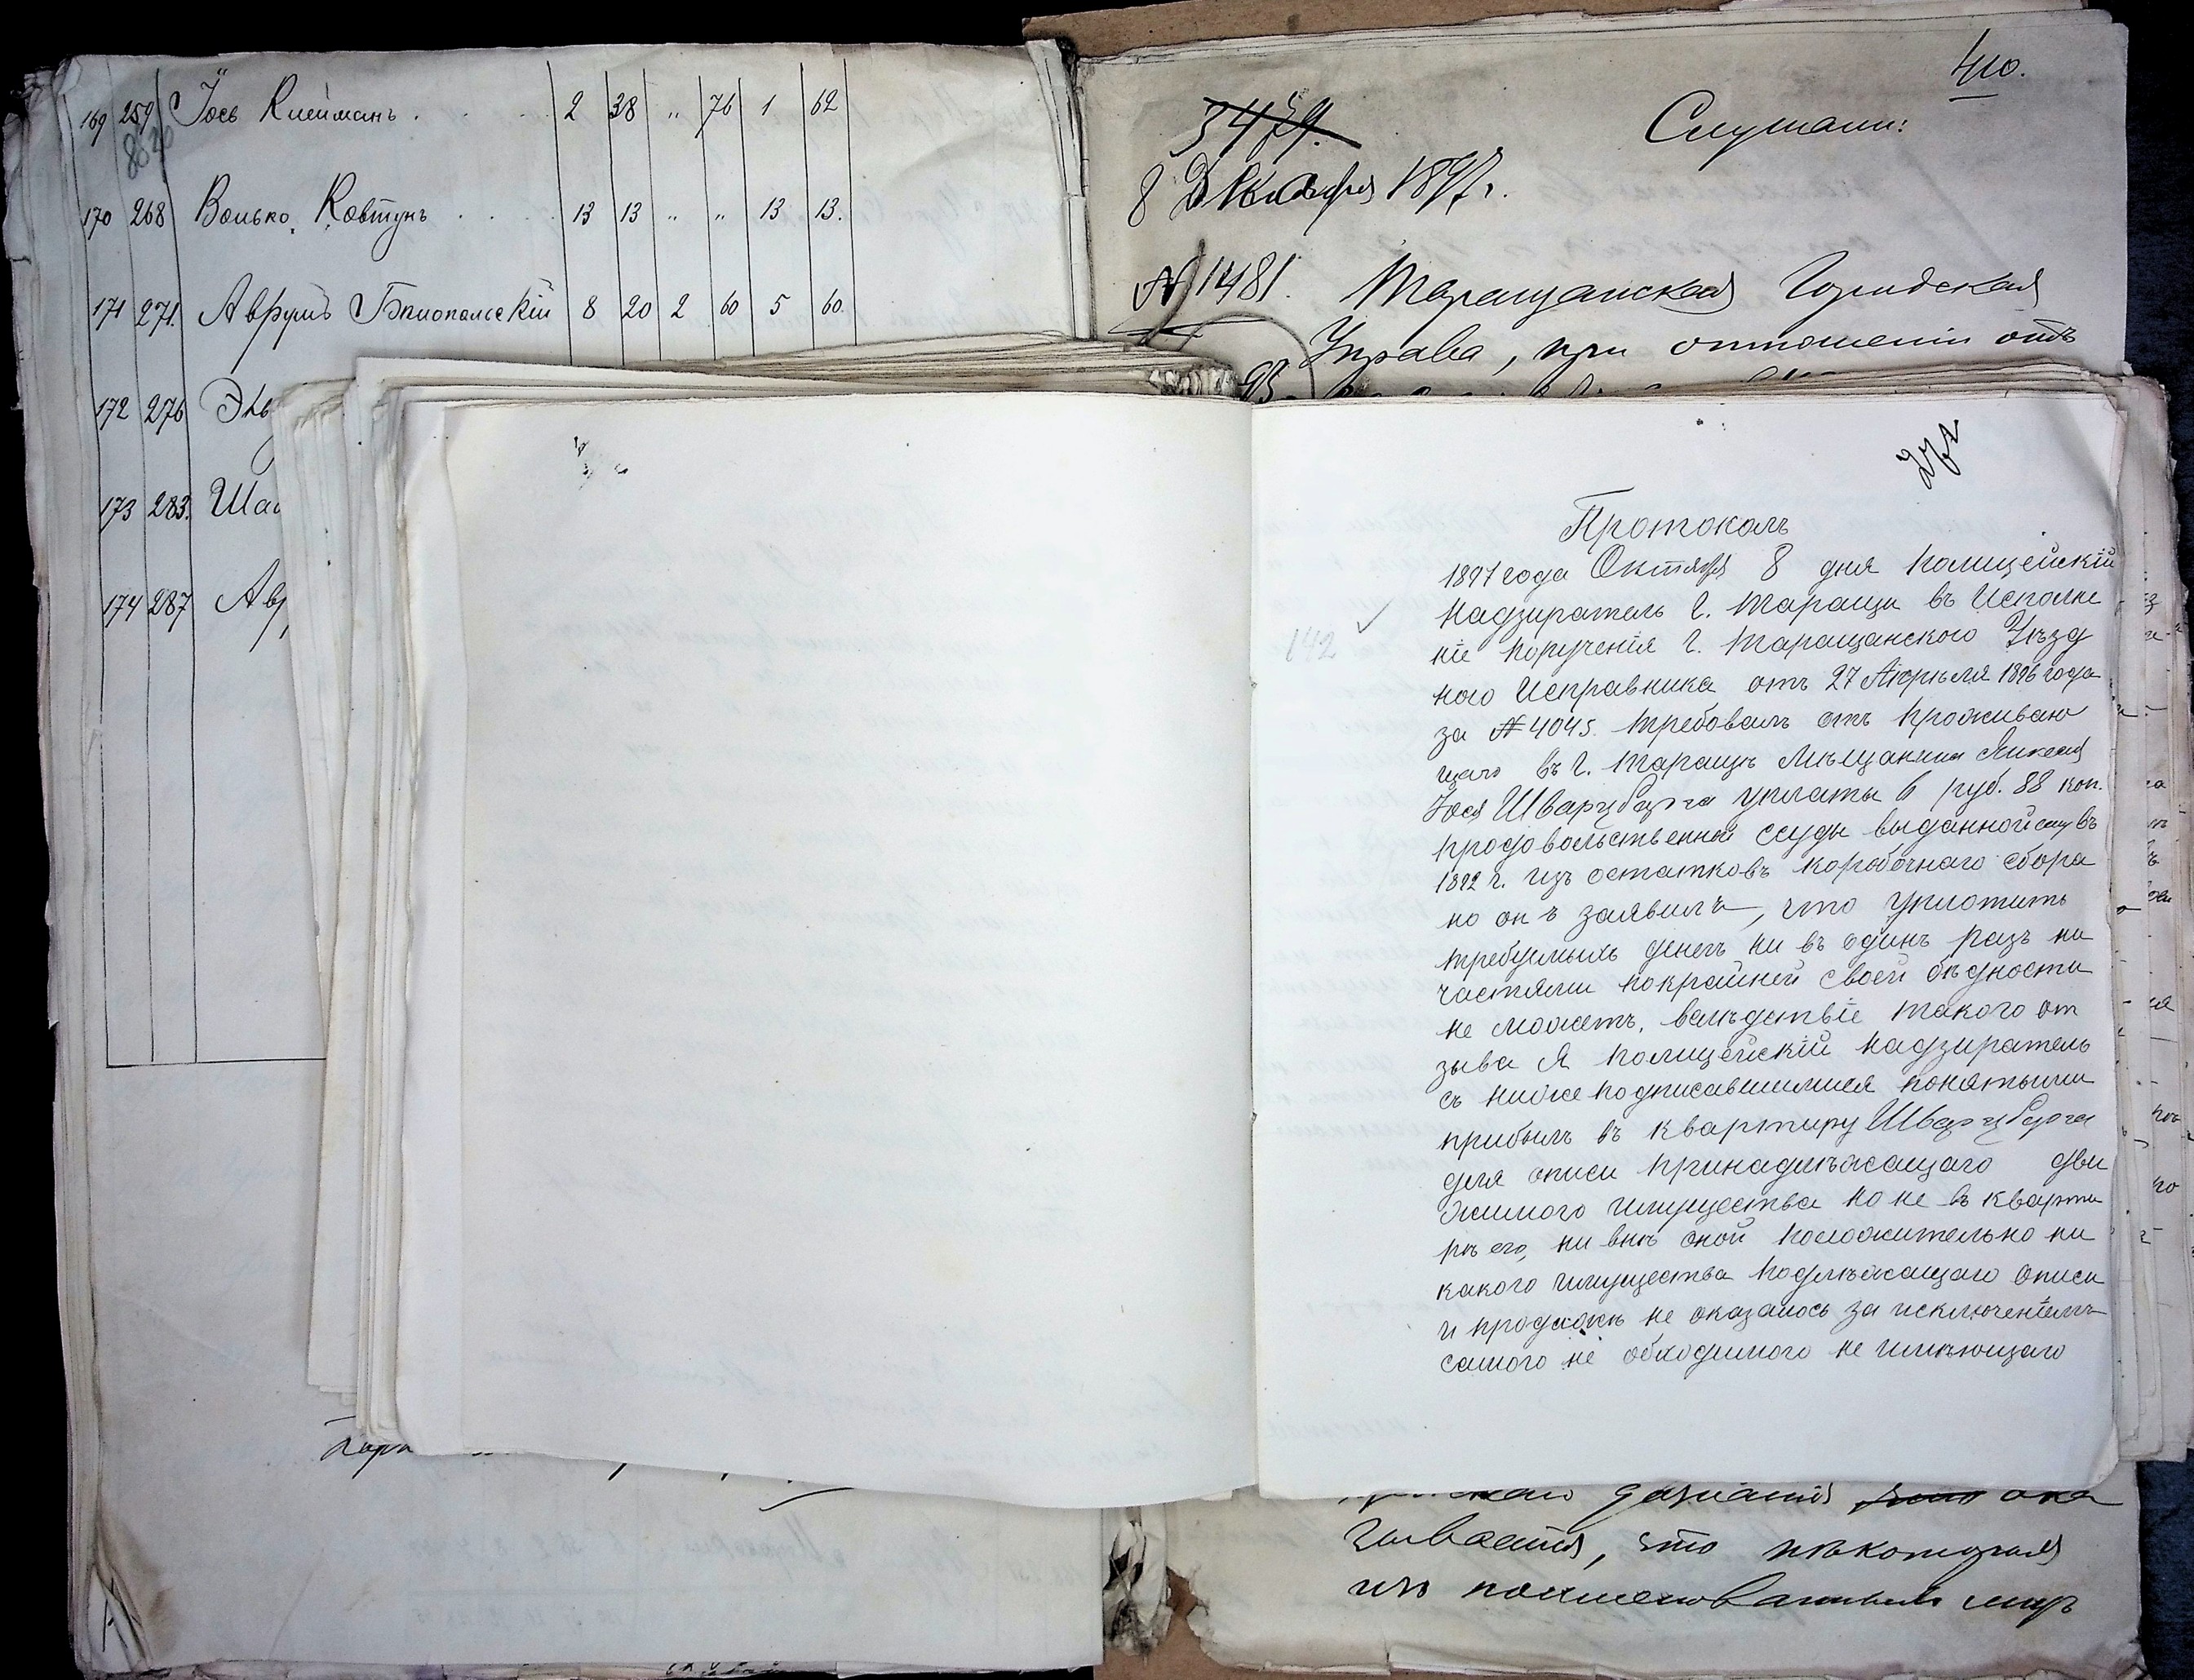 169 259 Іось Клейманъ . . . 2 38 " 76 1 62
170 268 Волько Ковтунъ . . . 13 13 " " 13 13.
171 271. Аврумъ Бѣлопольскій 8 20 2 60 5 60.
172 276
173 283. Ша
174 287 Ав
410.
Слушали:
8 Декабря 1897 г.
№ 1481. Таращанская Городская
Управа, при отношеніи отъ
Протоколъ
1897 года Октября 8 дня Полицейскій
Надзиратель г. Таращи въ Исполне
ніе порученія г. Таращанского Уѣзд
ного Исправника отъ 27 Апрѣля 1896 года
за № 4045. требовалъ отъ проживаю
щаго въ г. Таращѣ Мѣщанина Янкеля
Іося Шварцбурга уплаты 6 руб. 88 коп.
продовольственной ссуды выданной ему въ
1892 г. изъ остатковъ коробочнаго сбора
но онъ заявилъ, что уплотить
требуемыхъ денегъ ни въ одинъ разъ ни
частями покрайней своей бѣдности
не можетъ, вслѣдствіе такого от
зыва Я полицейскій надзиратель
съ нижеподписавшимися понятыми
прибылъ въ квартиру Шварцбурга
для описи принадлежащаго дви
жимого имущества но не въ кварти
рѣ его, ни внѣ оной положительно ни
какого имущества подлежащаго описи
и продажѣ не оказалось за исключеніемъ
самого не обходимого не имѣющаго
142
дознанія ока
зывается, что нѣкоторыя
изъ поименованныхъ лицъ